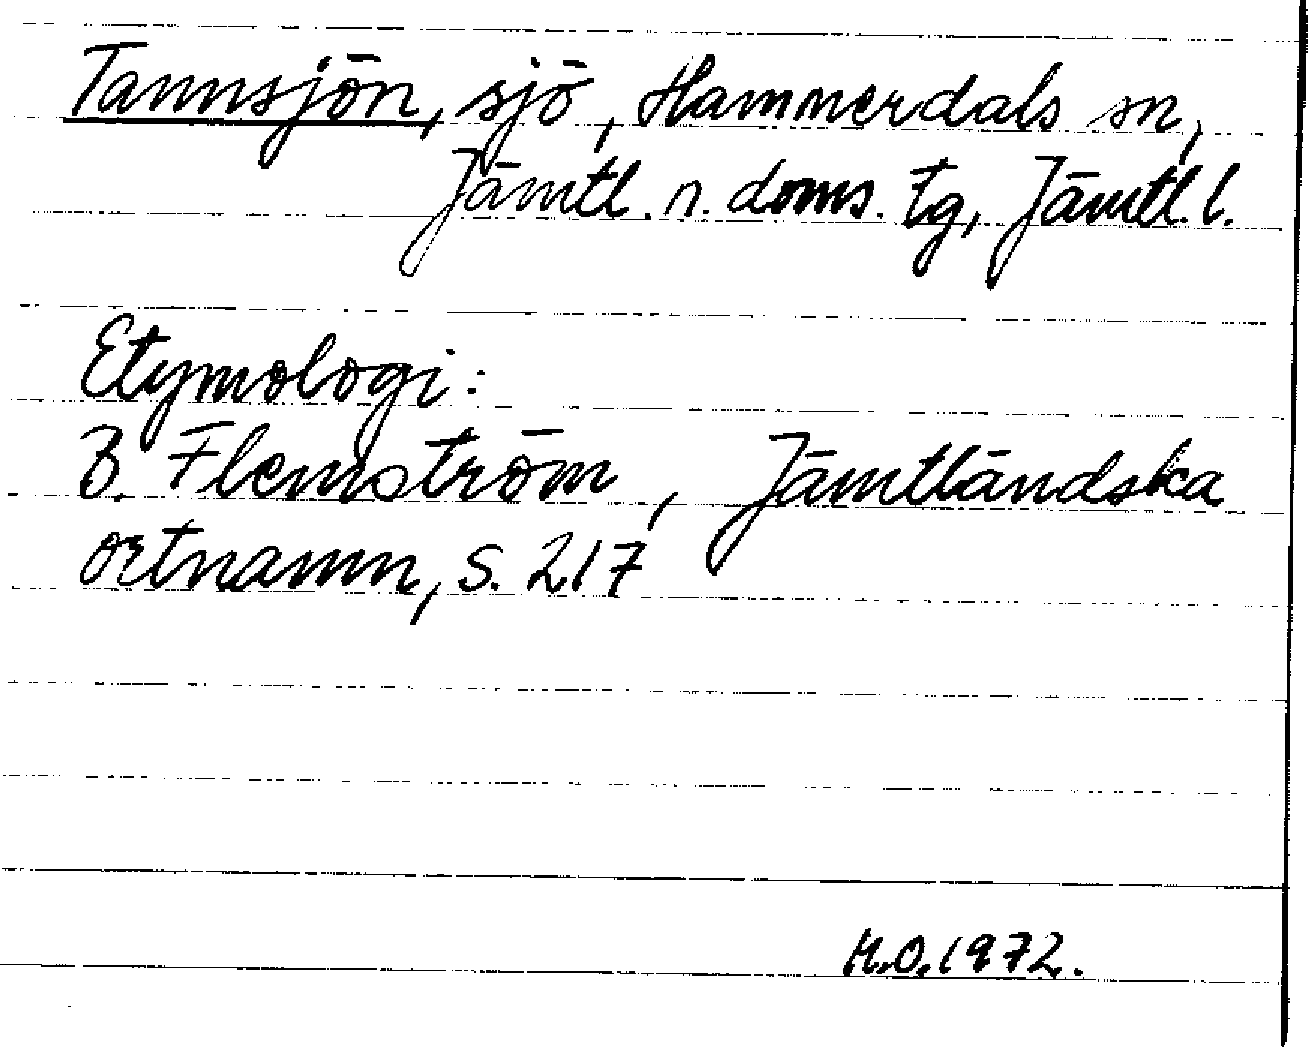 Tannsjön, sjö, Hammerdals sn,
Jämtl. n. doms. tg, Jämtl. l.
Etymologi:
B. Flemström, Jämtländska
ortnamn, s. 217
M.O. 1972.